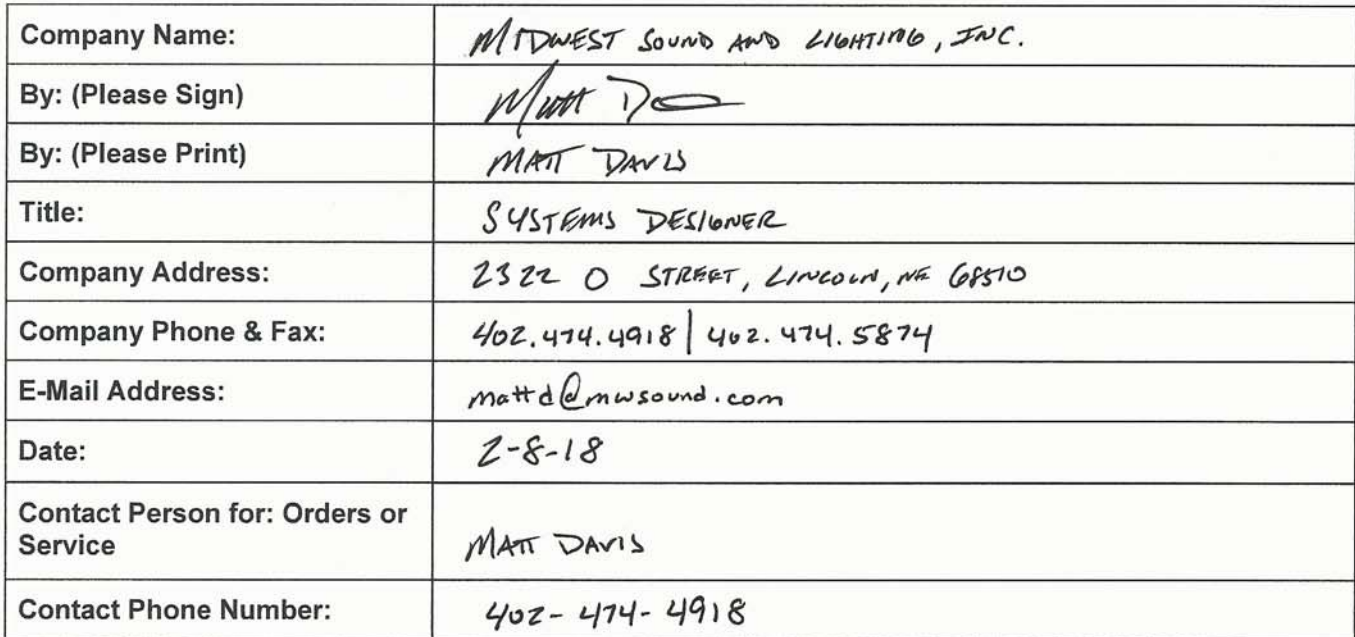 Company Name: MIDWEST SOUND AND LIGHTING, INC.
By: (Please Sign) Matt D
By: (Please Print) MATT DAVIS
Title: SYSTEMS DESIGNER
Company Address: 2322 O STREET, LINCOLN, NE 68510
Company Phone & Fax: 402.474.4918 | 402.474.5874
E-Mail Address: mattd@mwsound.com
Date: 2-8-18
Contact Person for: Orders or
Service MATT DAVIS
Contact Phone Number: 402-474-4918